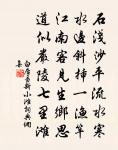 石淺沙平流水寒
水邊斜插一漁竿
江南客見生鄉思
道似嚴陵七里灘
白居易新小灘詩